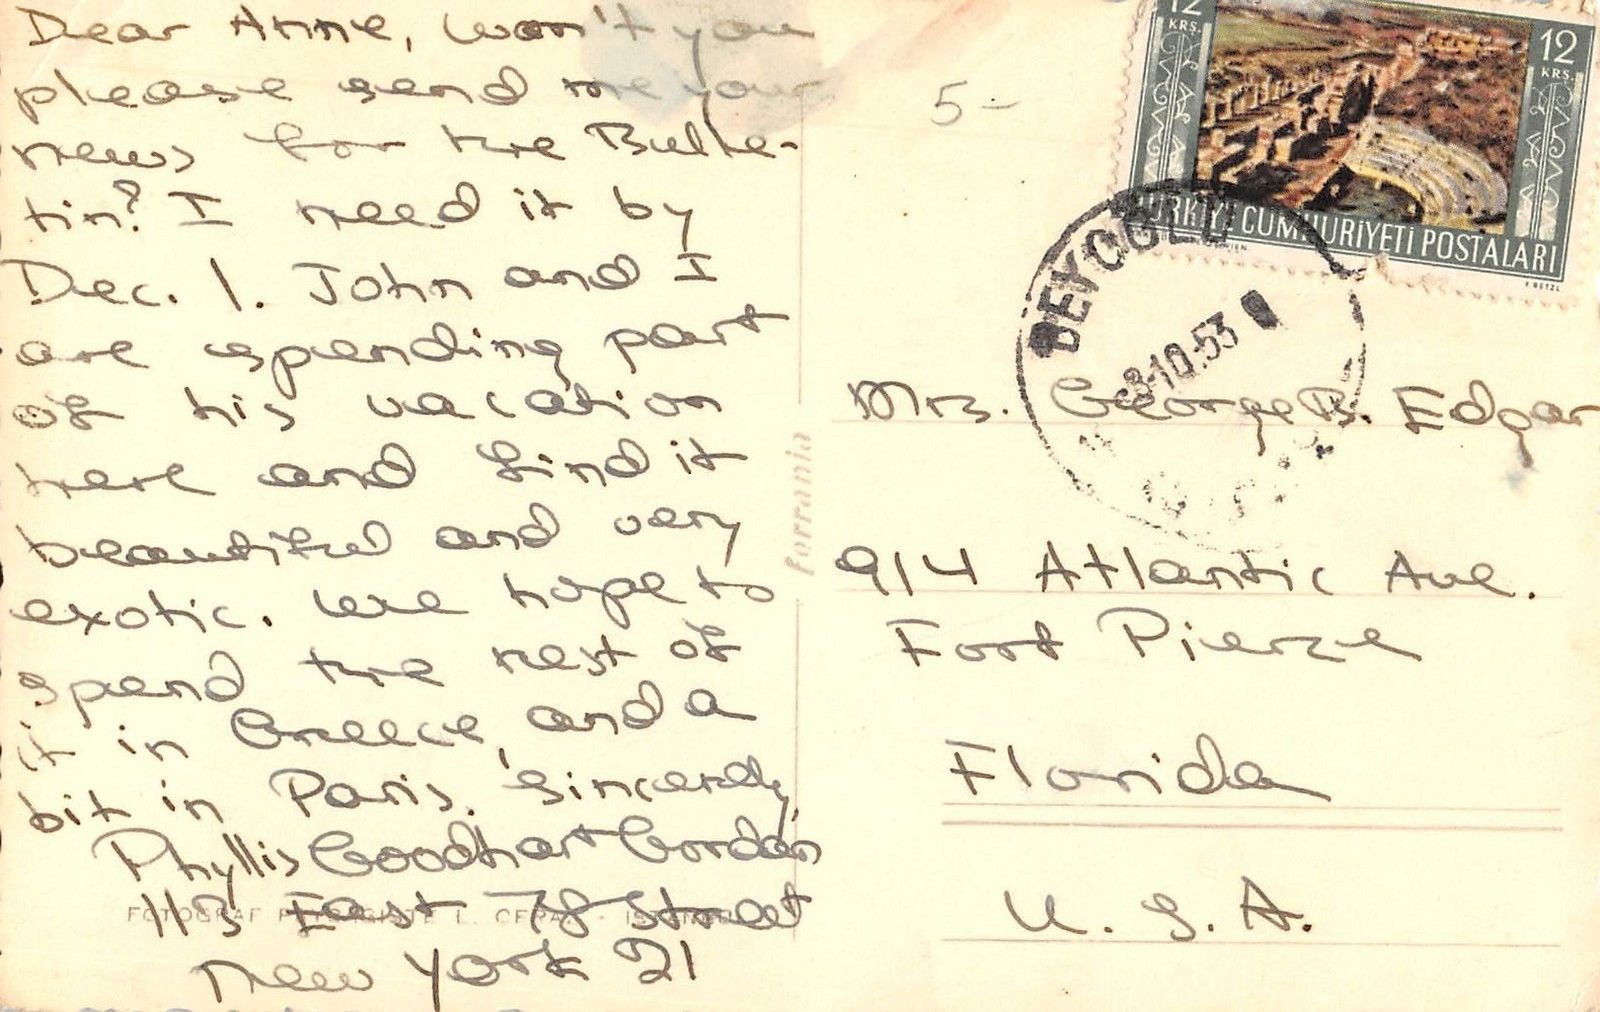 Dear Anne, won't you
please send me your
news for the Bulle-
tin? I need it by
Dec. 1. John and I
are spending part
of his vacation
here and find it
beautiful and very
exotic. We hope to
spend the rest of
it in Greece, and a
bit in Paris. Sincerely,
Phyllis Goodhart Gordan
113 East 78 Street
New York 21
FOTOGRAF
ferrania
5-
12
KRŞ.
12
KRŞ.
TÜRKİYE CUMHURİYETİ POSTALARI
BEYOĞLU
8-10.53
Mrs. George B. Edgar
914 Atlantic Ave.
Fort Pierce
Florida
U. S. A.